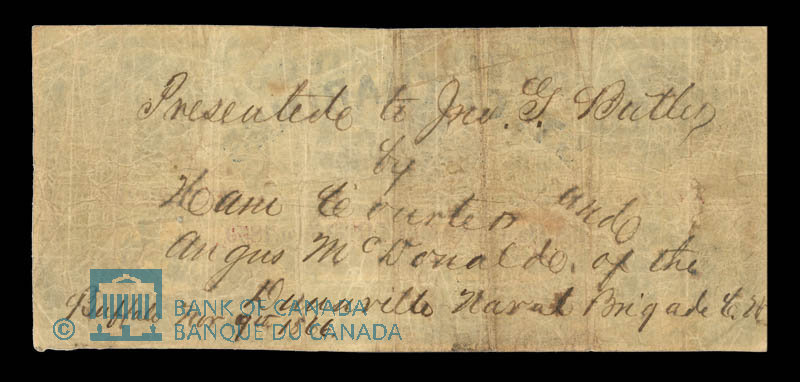 Presented to Jno. G. Butler
by
Ham Courter and
Angus McDonald, of the
Dunnville Naval Brigade C. W.
Buffalo Nov 9th 1866
BANK OF CANADA
© BANQUE DU CANADA